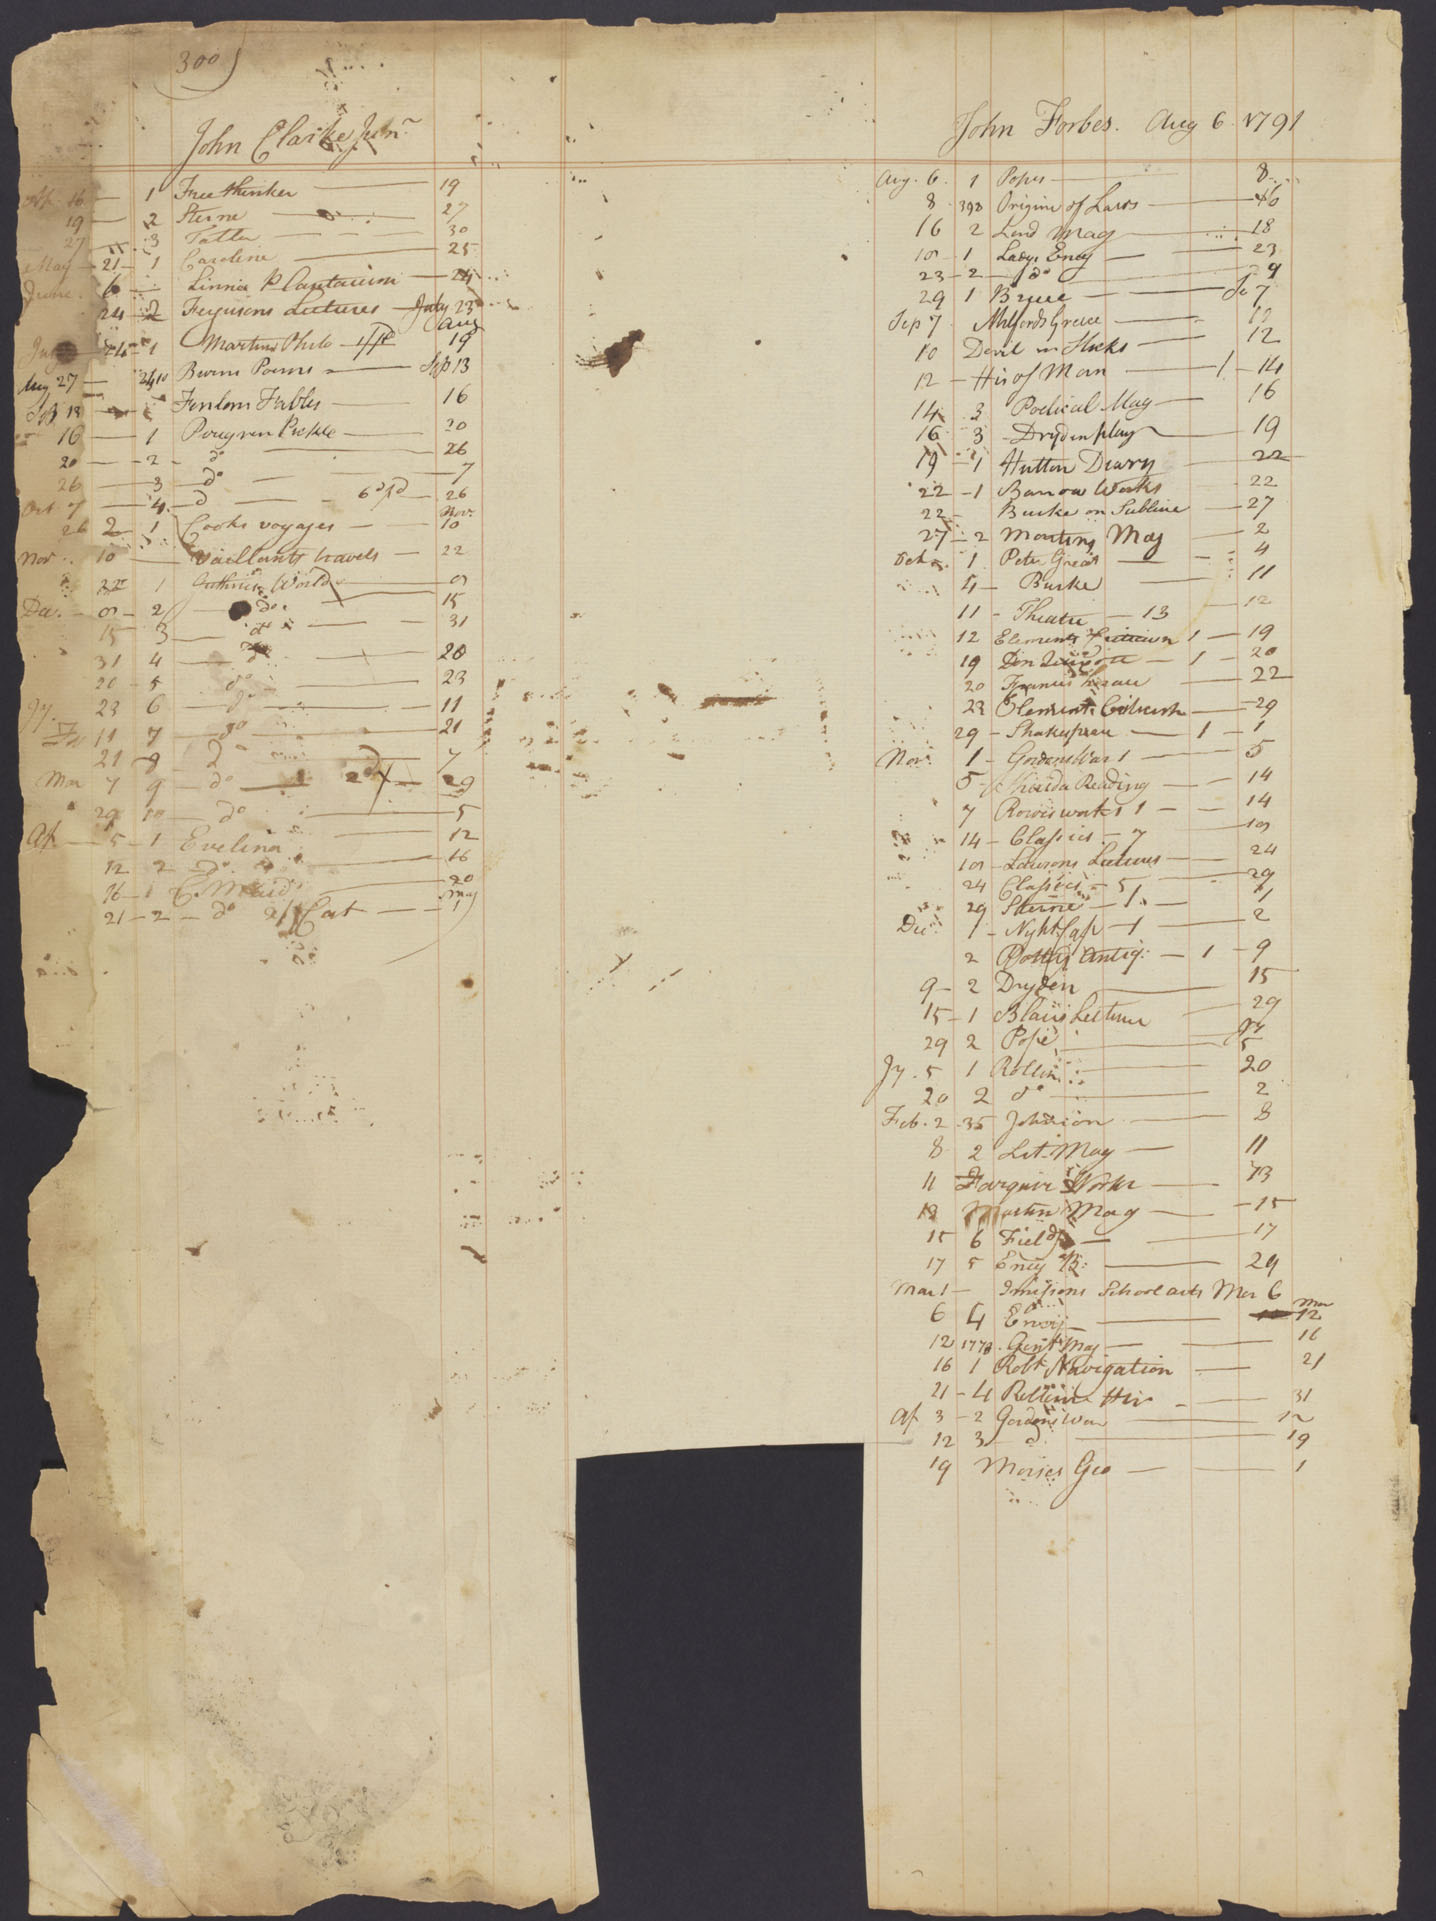 300
John Clarke Junr
16 — 1 Free thinker — 19
19 — 2 Sterne — 27
27 — 3 Tatler — 30
May — 21 — 1 Caroline — 25
June 6 — Linnia Plantarium — 24
24 — 2 Fergusons Lectures — July 23
Aug
24 — 1 Martins Philo — 19
Aug 27 — Burns Poems — Sep 13
Sep 13 — Fenlons Fables — 16
16 — 1 Peregren Pickle — 20
20 — 2 — do — 26
26 — 3 — do — 7
Oct 7 — 4 — d — 6d pd — 26
Nov.
26 2 1 Cooks voyages — 10
Nov. 10 — Vaillants travels — 22
22 1 Guthries World —
Dec. — 2 — do. — 15
15 3 — do — 31
31 4 — d — 20
20 — 5 do — 23
Jy. 23 6 — do — 11
Fe 11 7 — do — 21
21 — 8 — D — 7
Mar 7 9 — do — 29
29 10 — do — 5
Ap — 5 — 1 Evelina — 12
12 2 — do — 16
16 — 1 — 20
May
21 — 2 — do — 1
John Forbes. Aug 6 1791
Aug. 6. 1 Popes — 8
8 398 Origine of Laws — 16
16 2 Lond Mag — 18
18 1 Ladys Ency — 23
23 — 2 — do — 9
29 1 Bruce — Se 7
Sep 7 Milfords Greece — 10
10 Devil on Sticks — 12
12 — His of Man — 1 — 14
14 3 Poetical Mag — 16
16 3 — Dryden plays — 19
19 — 1 Hutton Diary — 22
22 — 1 Barrow Works — 22
22 — Burke on Sublime — 27
27 — 2 Martins Mag — 2
Oct 2. 1 Peter Great — 4
4 — Burke — 11
11 — Theatre — 13 — 12
12 Elements Criticism 1 — 19
19 Don Quixote — 1 — 20
20 Francis Horace — 22
22 Elements Criticism — 29
29 — Shakespeare — 1 — 1
Nov. 1 — Gordons War 1 — 5
5 — Reading — 14
7 Rowes works 1 — 14
14 — Classics — 7 — 18
18 — Lawsons Lectures — 24
24 Classics — 5 — 29
29 Sterne — 1. — 1
Dec. 1 — Night Cap — 1 — 2
2 Potters Antiq: — 1 — 9
9 — 2 Dryden — 15
15 — 1 Blairs Lecture — 29
29 2 Pope — Jy 5
Jy. 5 1 Rollin — 20
20 2 do — 2
Feb. 2 35 Johnson — 8
8 2 Lit. Mag — 11
11 Farquire Works — 13
13 Martin Mag — 15
15 6 Field — 17
17 5 Ency B: — 29
Mar 1 — Imisons School arts Mar 6
Mar
6 4 Ency — 12
12 1778. Gent Mag — 16
16 1 Robt Navigation — 21
21 — 4 Rollins His — 31
Ap 3 — 2 Gordons War — 12
12 3 — d — 19
19 Morses Geo — 1